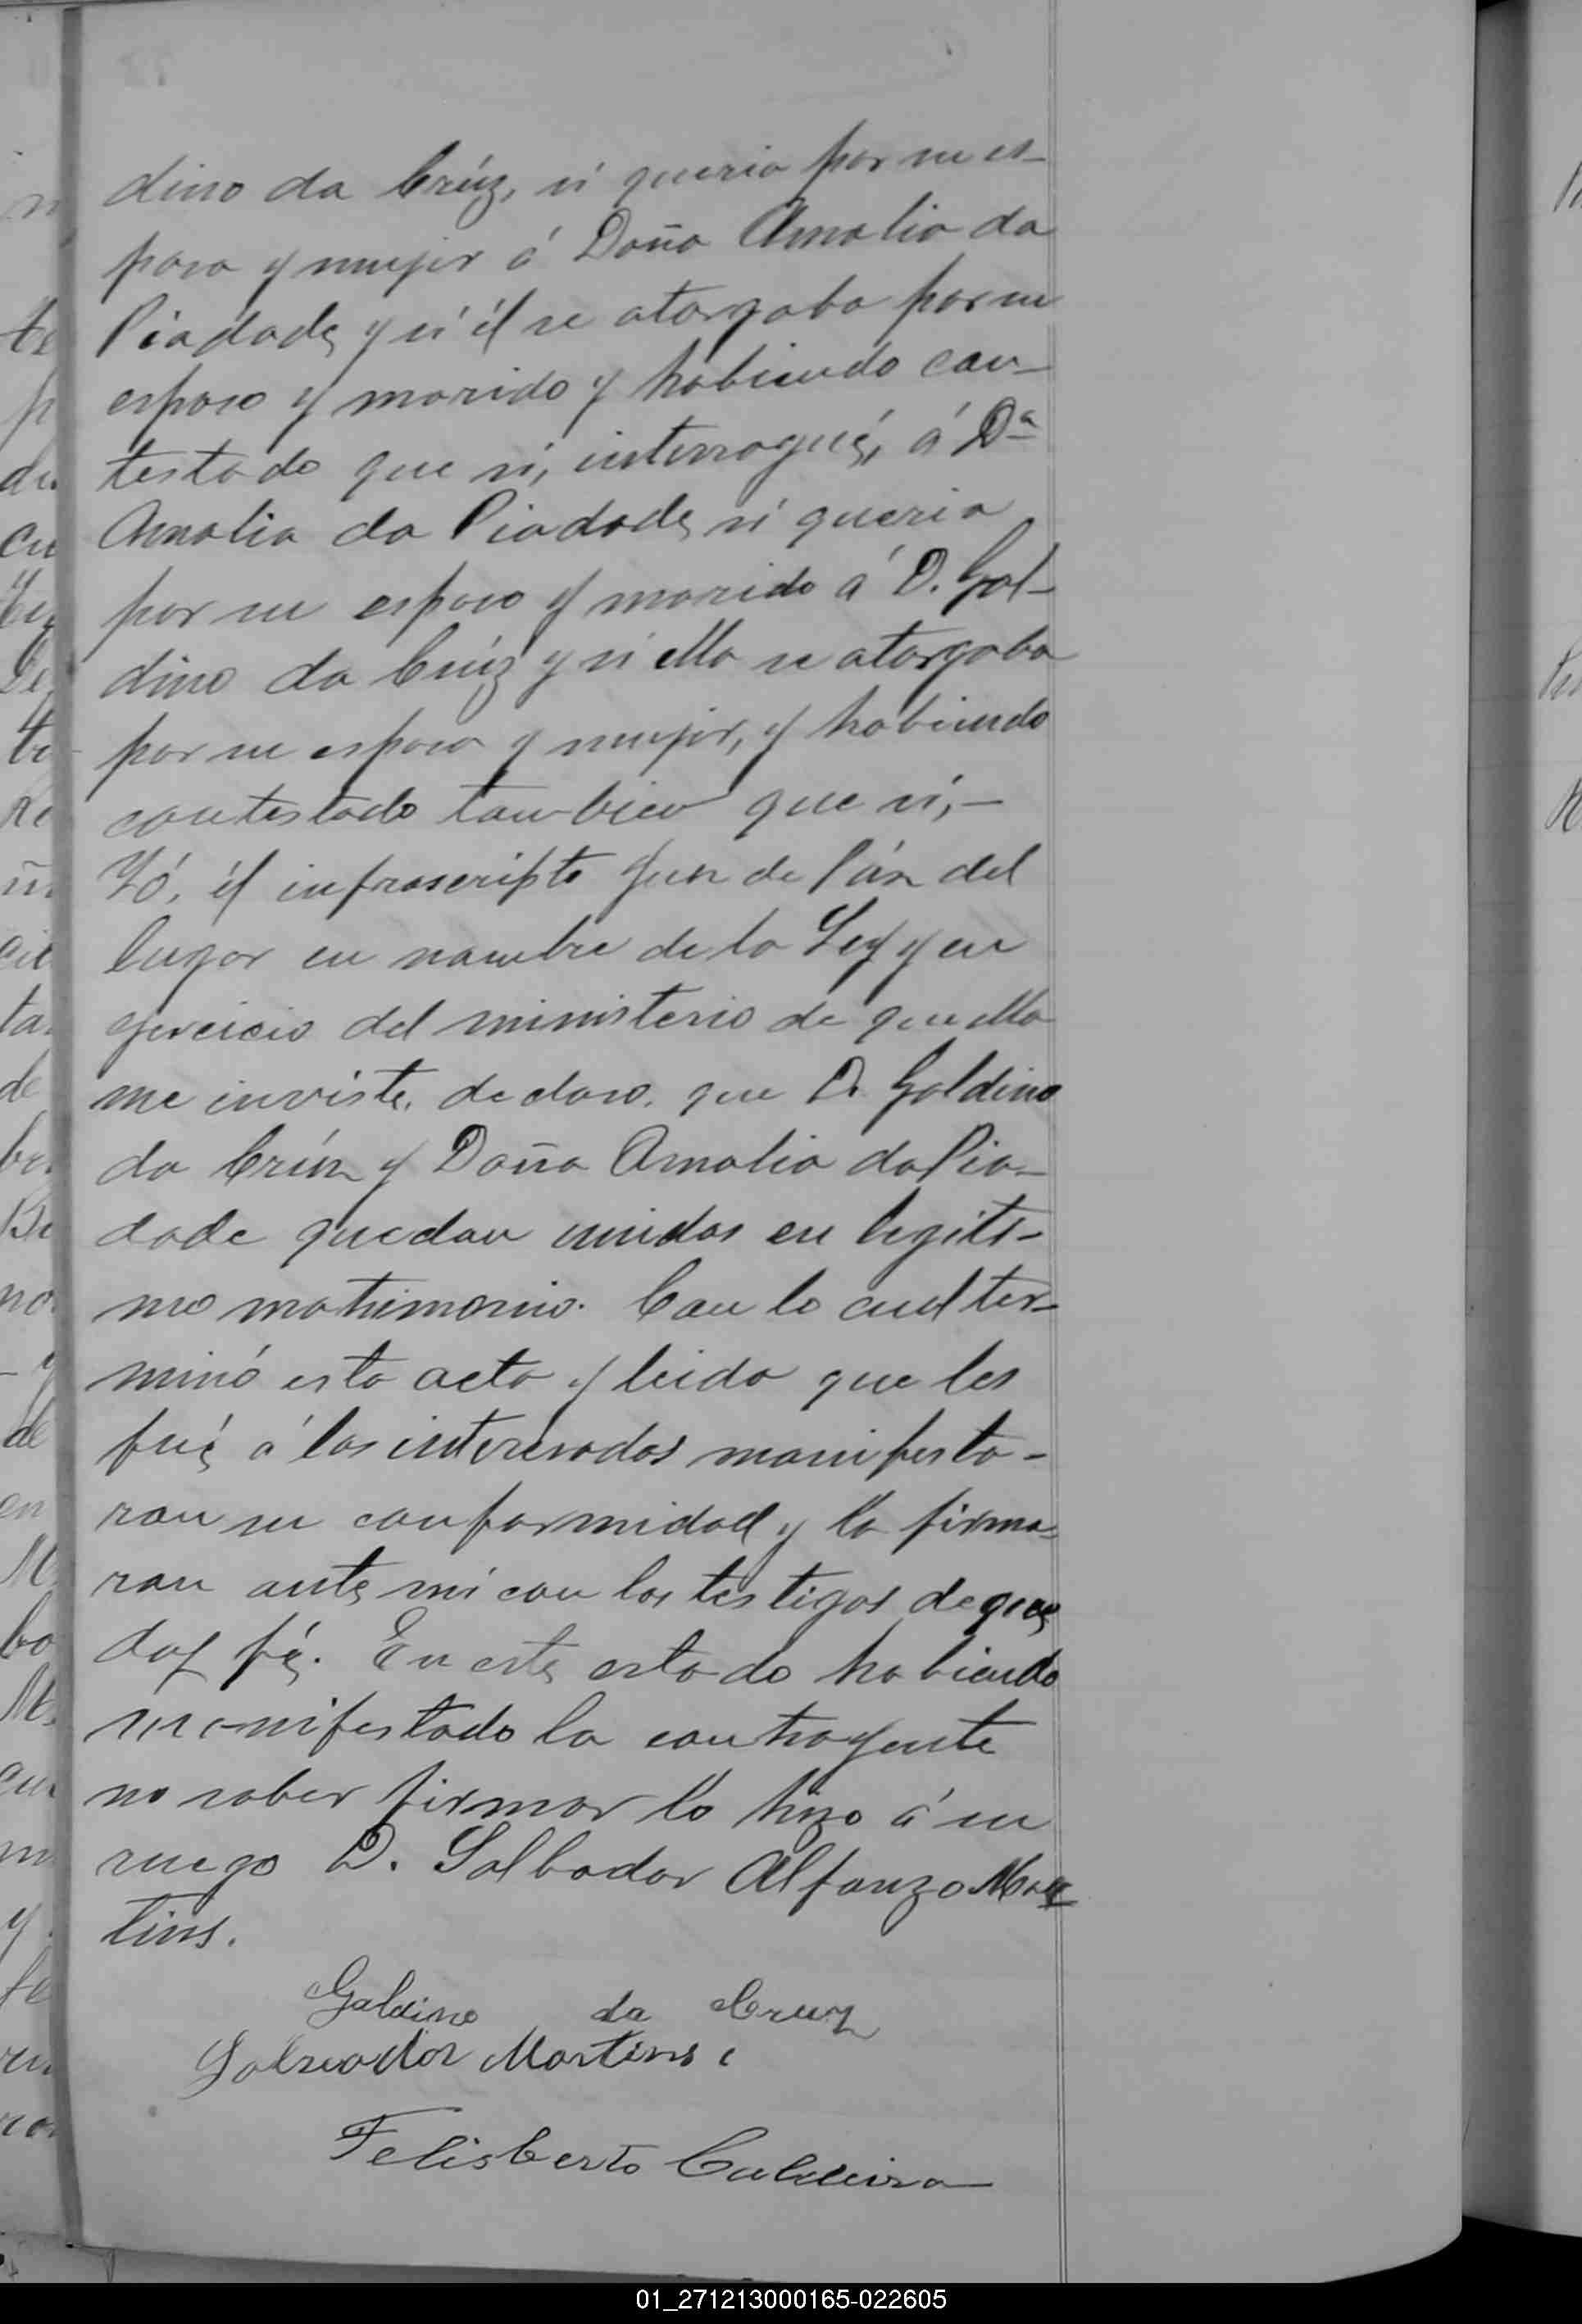 dino da Crúz, si queria por su es-
posa y mujer á Doña Amalia da
Piadade y si él se otorgaba por su
esposo y marido y habiendo con-
testado que si, interrogué, á Dª
Amalia da Piadade si queria
por su esposo y marido á D. Gal-
dino da Crúz y si ella se otorgaba
por su esposa y mujer, y habiendo
contestado tambien que si,-
Yó, él infrascripto Juez de Páz del
lugar en nombre de la Ley y en
ejercicio del ministerio de que ella
me inviste, declaro, que D. Galdino
da Crúz y Doña Amalia da Pia-
dade quedan unidos en legiti-
mo matrimonio. Con lo cual ter-
minó esta acta y leida que les
fué á los interesados manifesta-
ron su conformidad y la firma-
ron ante mi con los testigos de que
doy fé. En este estado habiendo
manifestado la contrayente
no saber firmar lo hizo á su
ruego D. Salbador Alfonzo Mar-
tins.
Galdino da Cruz
Salvador Martins
Felisberto Caldeira
01_271213000165-022605